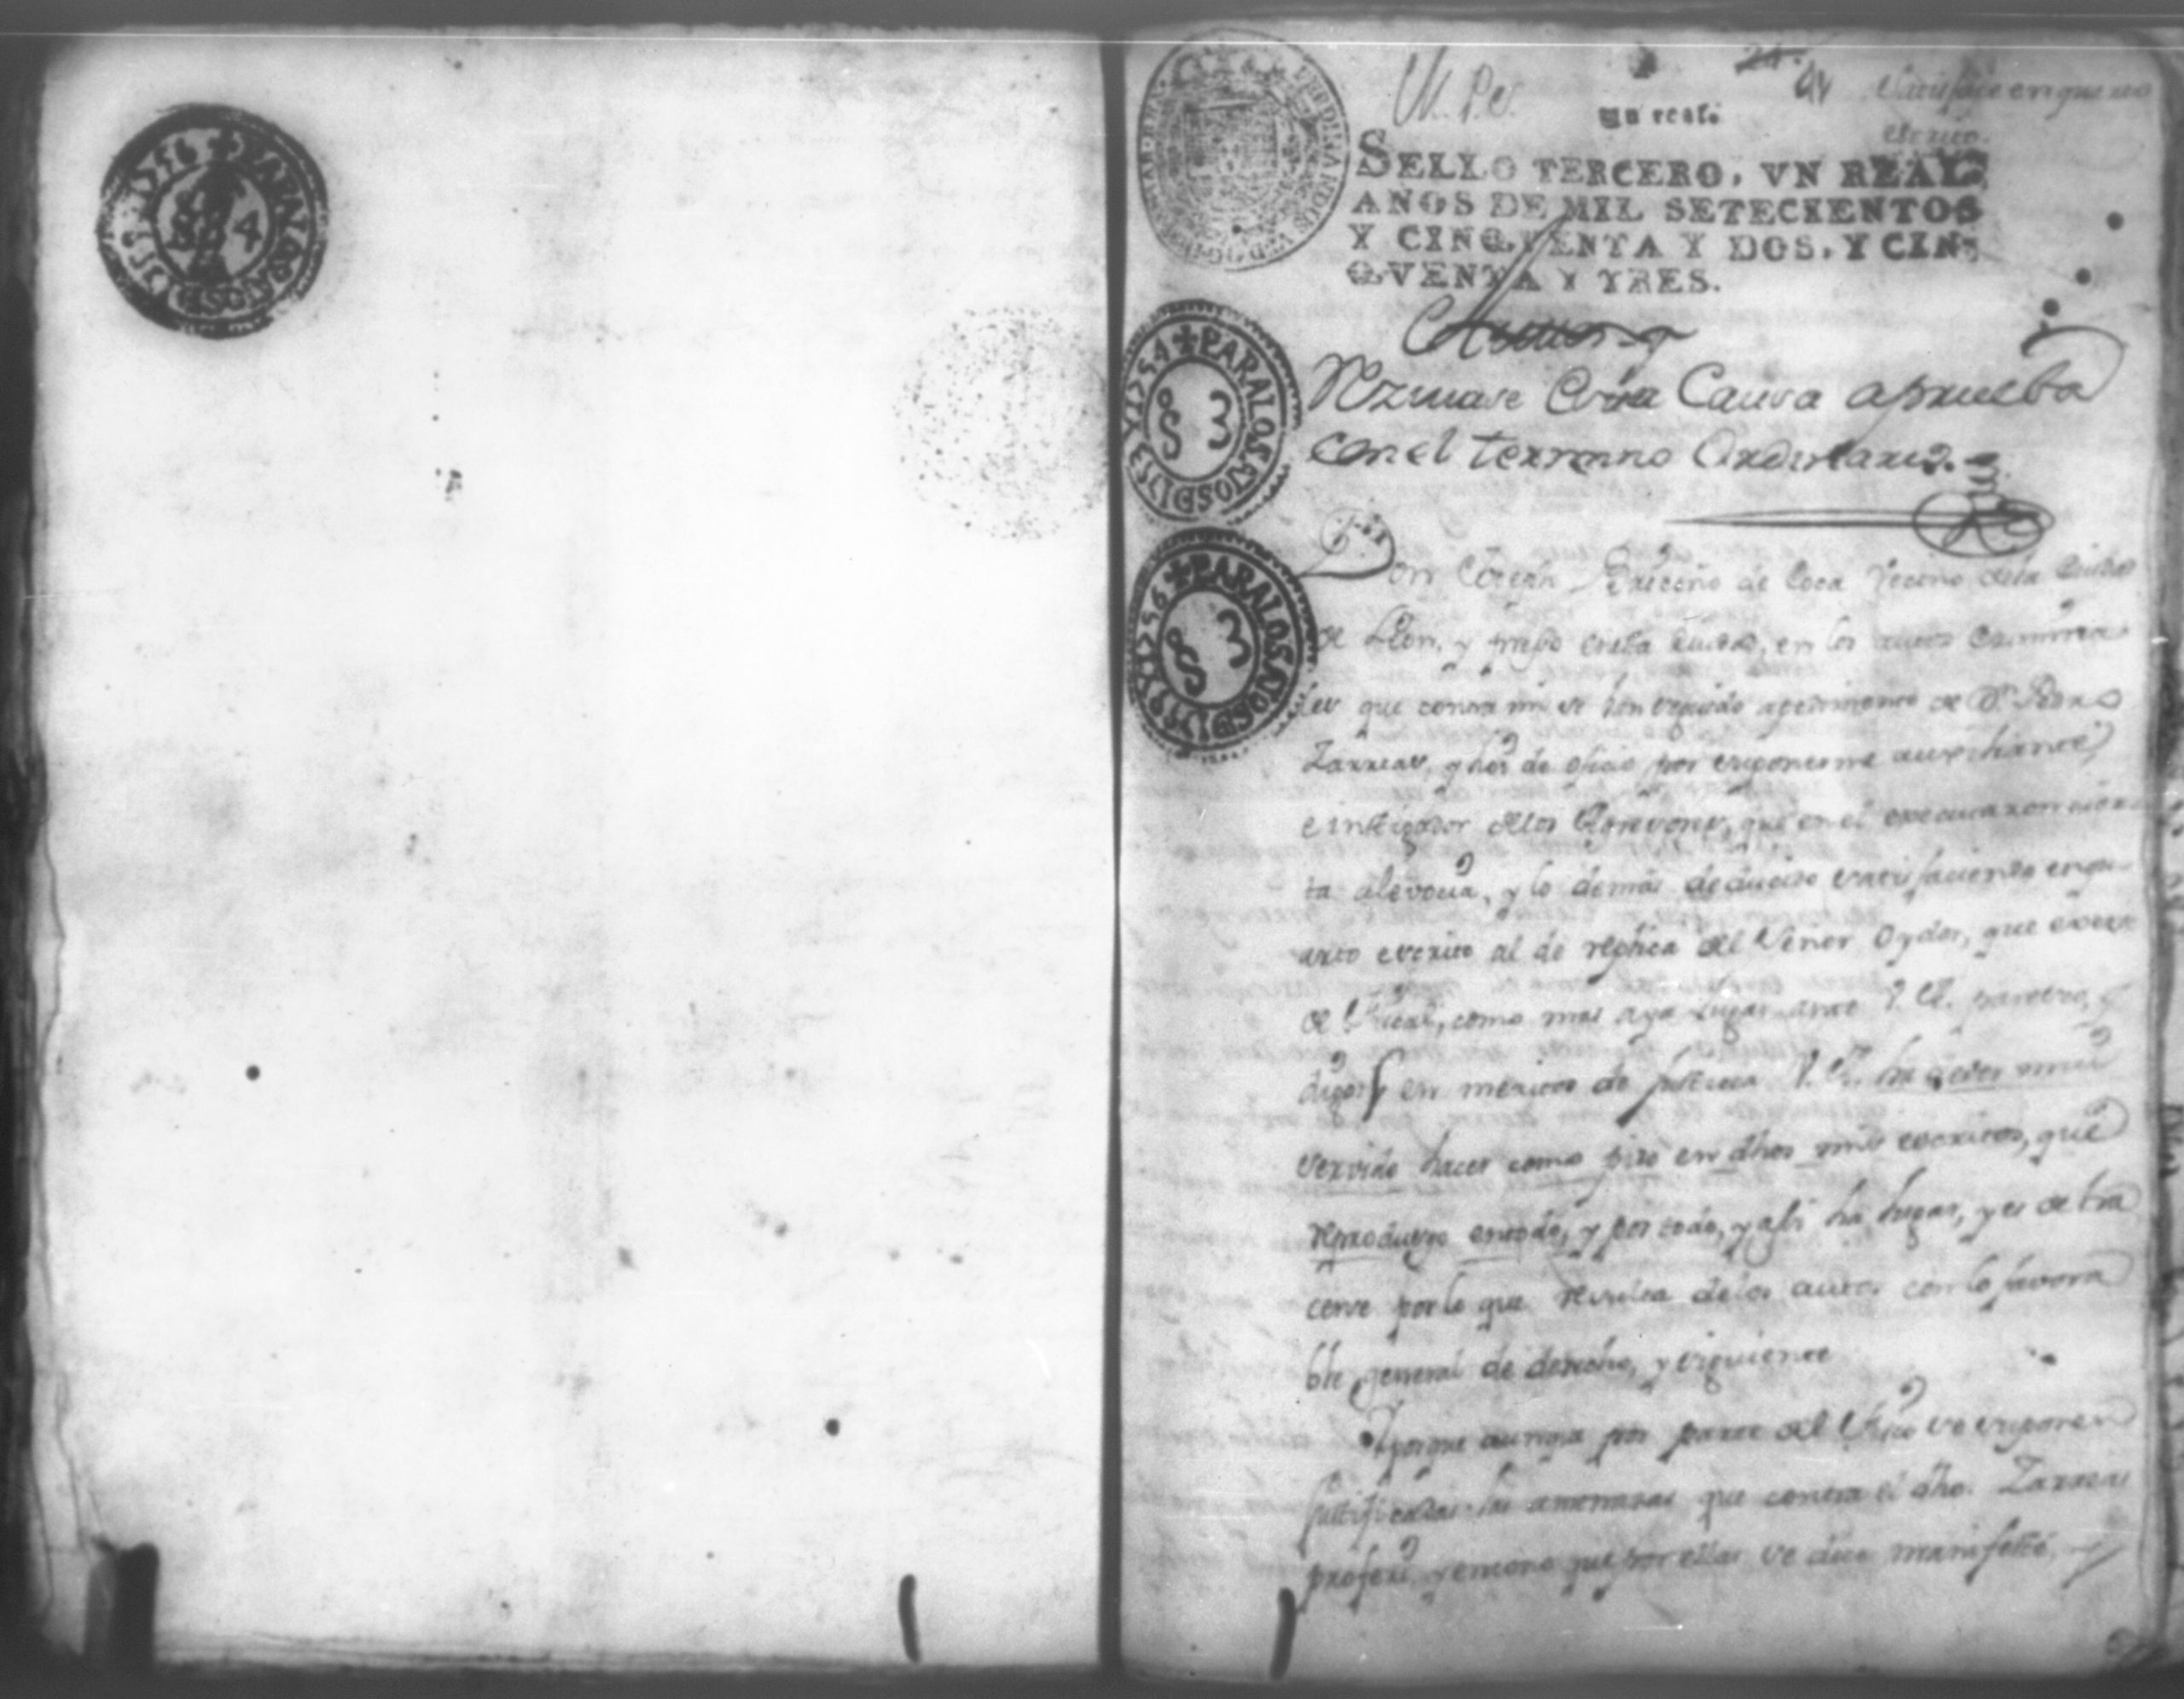 ✠ PARA LOS AÑOS D 1755 Y 1756
SS 4
M. P. S.
24
Satisface en quarto
escrito.
Un real.
SELLO TERCERO, VN REAL,
AÑOS DE MIL SETECIENTOS
Y CINQVENTA Y DOS, Y CIN-
QVENTA Y TRES.
✠ PARA LOS AÑOS D 1753 Y 1754
SS 3
✠ PARA LOS AÑOS D 1755 Y 1756
SS 3
Causa aprueba
con el termino Ordinario.
Don Briceño de Coca Vecino dela Ciudad
de Leon, y preso en esta Ciudad, en los autos Crimina
les que contra mi se han seguido apedimento de Dn. Pedro
Larreas, y hoi de oficio por suponerme auxiliante
e instigador delos Agresores, que en el executaron cier
ta alevosia, y lo demas deducido satisfaciendo enqu
arto escrito al de replica del Señor Oydor, que exerce
de Fiscal, como mas aya lugar ante V. A. paresco, y
digo que en meritos de justicia V. A. ha de ser mui
servido hacer como pido en dhos mis escritos, que
reproduzco entodo, y por todo, y assi ha lugar, y es de ha
cerse por lo que resulta delos autos con lo favora
ble general de derecho, y siguiente
Y porque aunque por parte del Fisco se suponen
justificadas las amenazas que contra el dho. Larreas
proferi, y encono que por ellas se dice manifesté, y